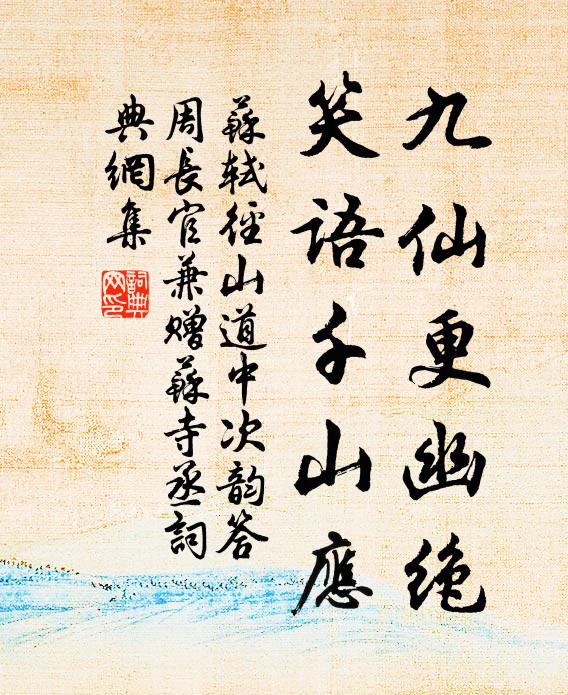 九仙更幽绝
笑語千山應
蘇軾徑山道中次韵答
周長官兼赠蘇寺丞詞
典網集
詞典
网印